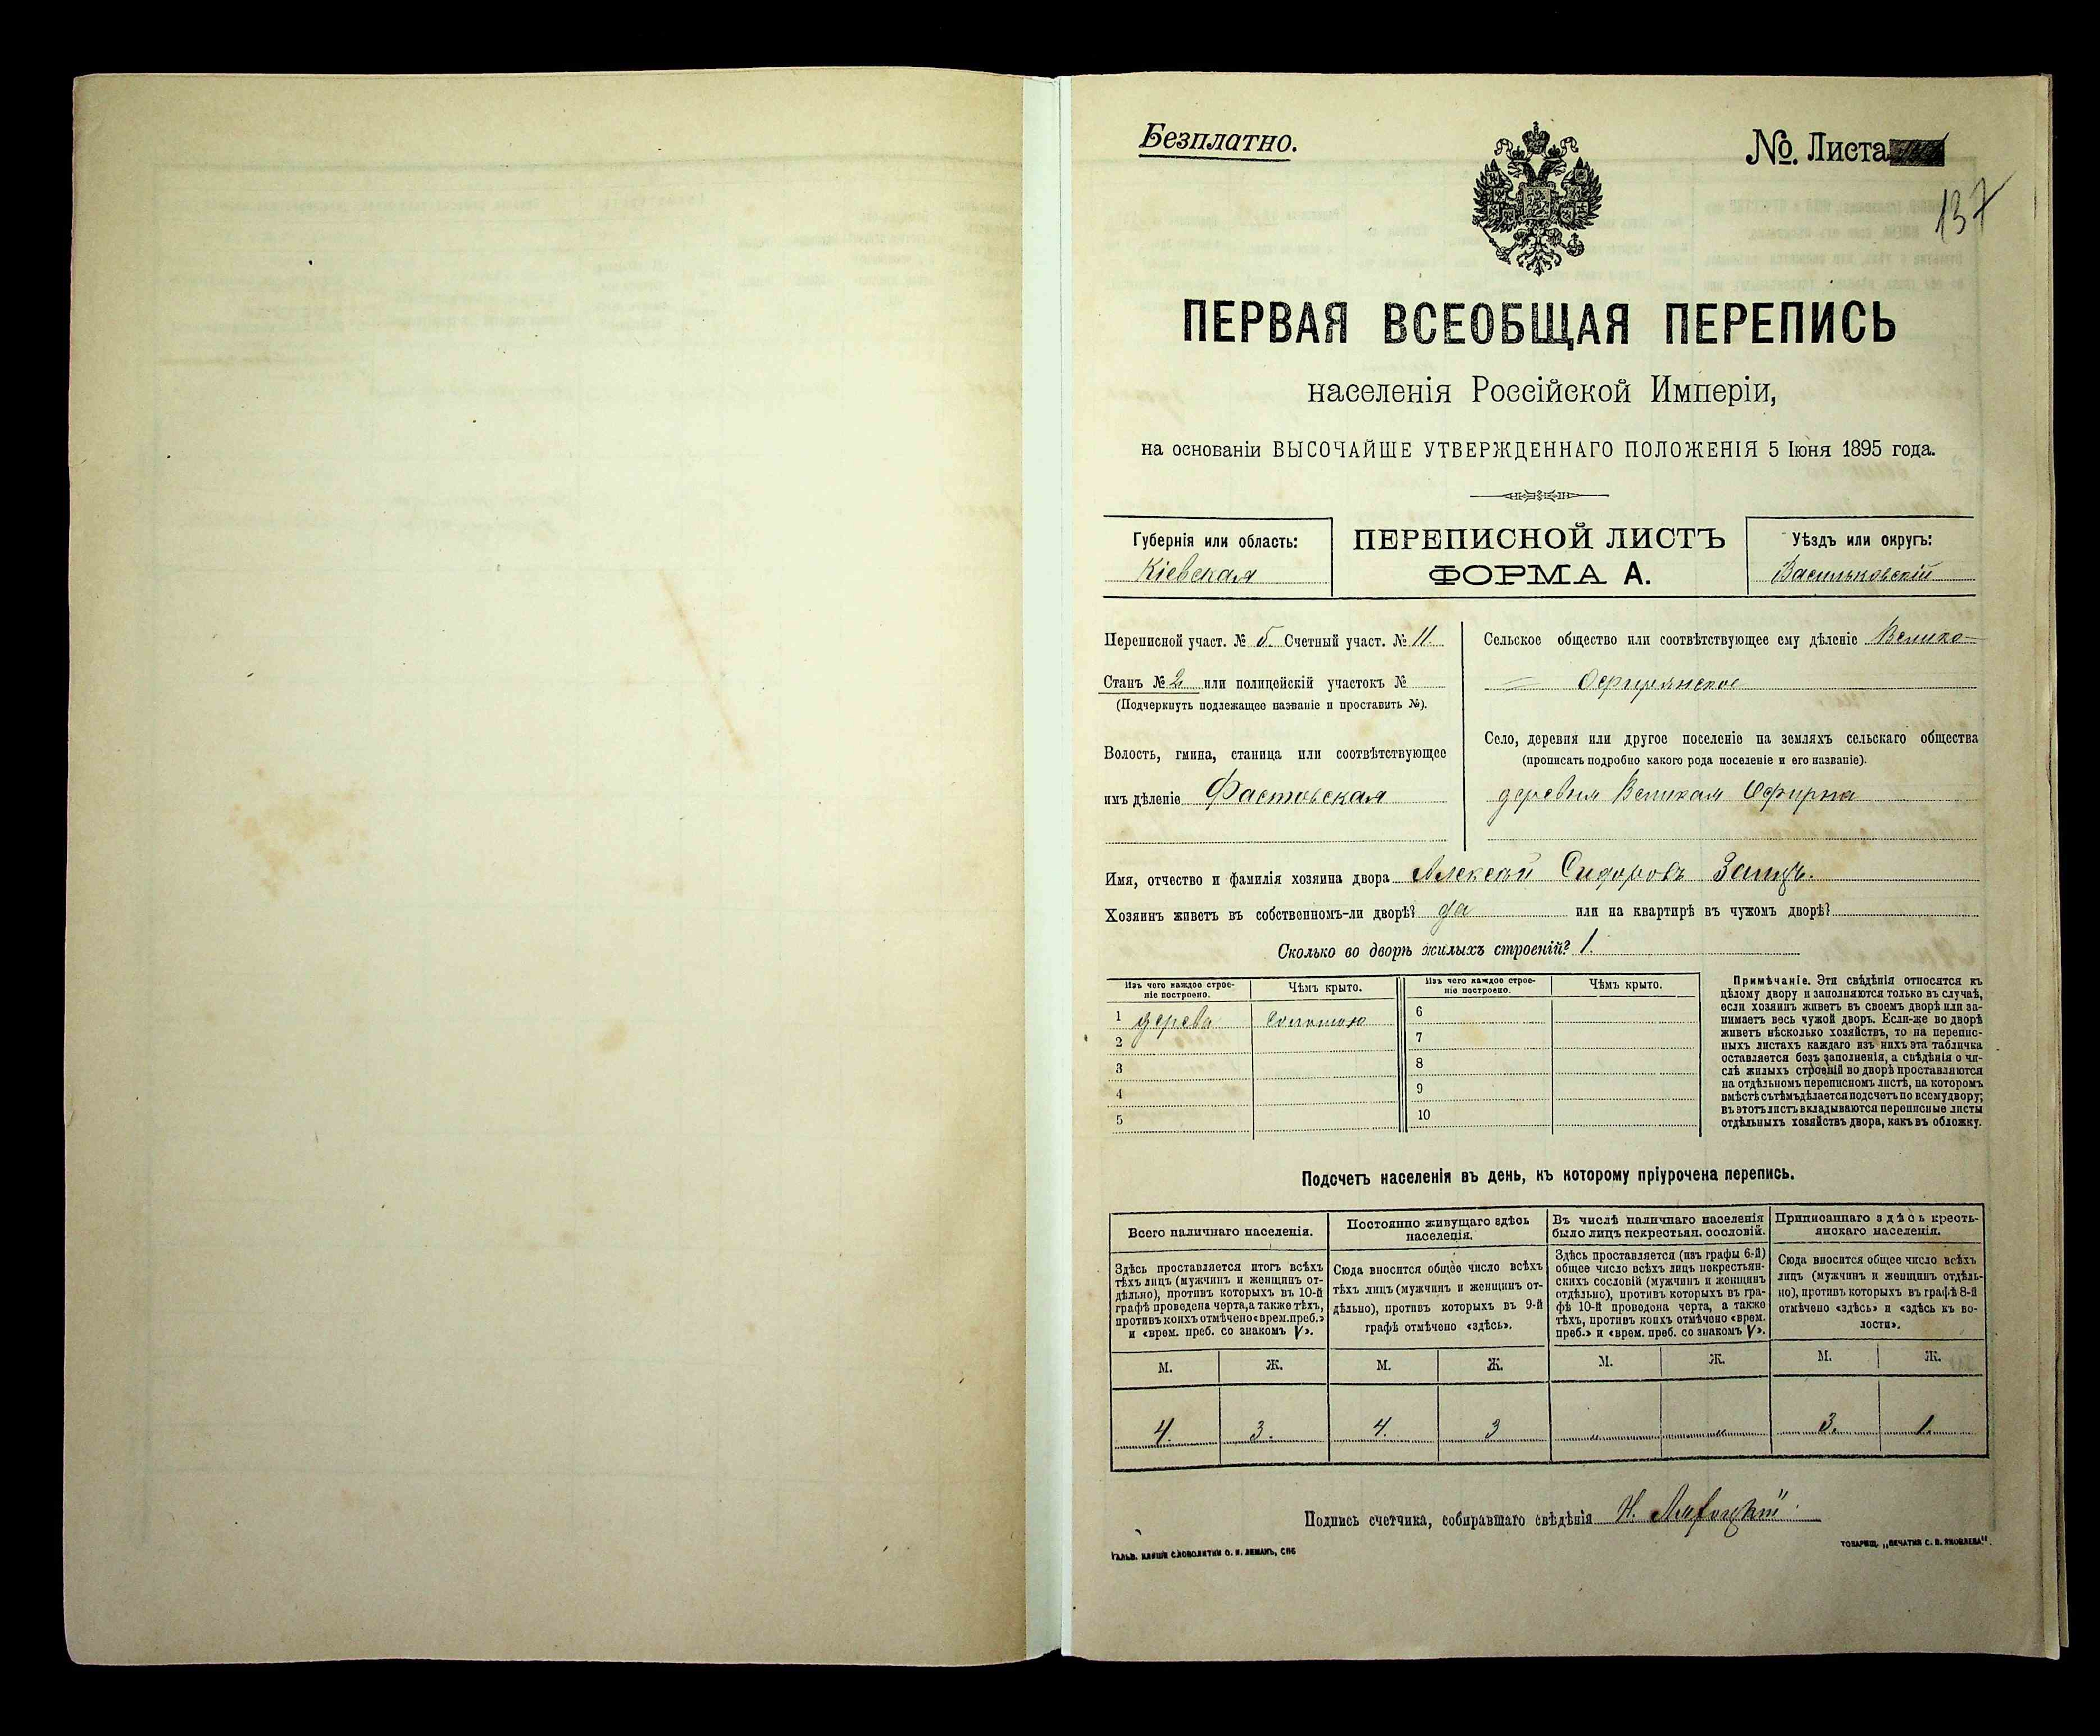 Безплатно.
№. Листа
137
ПЕРВАЯ ВСЕОБЩАЯ ПЕРЕПИСЬ
населенія Россійской Имперіи,
на основаніи ВЫСОЧАЙШЕ УТВЕРЖДЕННАГО ПОЛОЖЕНІЯ 5 Іюня 1895 года.
Губернія или область:
Кіевская
ПЕРЕПИСНОЙ ЛИСТЪ
ФОРМА А.
Уѣздъ или округъ:
Васильковскій
Переписной участ. № 5. Счетный участ. № 11.
Станъ № 2 или полицейскій участокъ №
(Подчеркнуть подлежащее названіе и проставить №).
Волость, гмина, станица или соотвѣтствующее
имъ дѣленіе Фастовская
Сельское общество или соотвѣтствующее ему дѣленіе Велико-
= Офирнянское
Село, деревня или другое поселеніе на земляхъ сельскаго общества
(прописать подробно какого рода поселеніе и его названіе).
деревня Великая Офирна
Имя, отчество и фамилія хозяина двора Алексѣй Сидоровъ Заяцъ.
Хозяинъ живетъ въ собственномъ-ли дворѣ? да или на квартирѣ въ чужомъ дворѣ?
Сколько во дворѣ жилыхъ строеній? 1.
Изъ чего каждое строе-
ніе построено.
Чѣмъ крыто.
1 дерева соломою
2
3
4
5
Изъ чего каждое строе-
ніе построено.
Чѣмъ крыто.
6
7
8
9
10
Примѣчаніе. Эти свѣдѣнія относятся къ
цѣлому двору и заполняются только въ случаѣ,
если хозяинъ живетъ въ своемъ дворѣ или за-
нимаетъ весь чужой дворъ. Если-же во дворѣ
живетъ нѣсколько хозяйствъ, то на перепис-
ныхъ листахъ каждаго изъ нихъ эта табличка
оставляется безъ заполненія, а свѣдѣнія о чи-
слѣ жилыхъ строеній во дворѣ проставляются
на отдѣльномъ переписномъ листѣ, на которомъ
вмѣстѣ съ тѣмъ дѣлается подсчетъ по всему двору;
въ этотъ листъ вкладываются переписные листы
отдѣльныхъ хозяйствъ двора, какъ въ обложку.
Подсчетъ населенія въ день, къ которому пріурочена перепись.
Всего наличнаго населенія.
Здѣсь проставляется итогъ всѣхъ
тѣхъ лицъ (мужчинъ и женщинъ от-
дѣльно), противъ которыхъ въ 10-й
графѣ проведена черта, а также тѣхъ,
противъ коихъ отмѣчено «врем. преб.»
и «врем. преб. со знакомъ V».
М. Ж.
4. 3.
Постоянно живущаго здѣсь
населенія.
Сюда вносится общее число всѣхъ
тѣхъ лицъ (мужчинъ и женщинъ от-
дѣльно), противъ которыхъ въ 9-й
графѣ отмѣчено «здѣсь».
М. Ж.
4. 3
Въ числѣ наличнаго населенія
было лицъ некрестьян. сословій.
Здѣсь проставляется (изъ графы 6-й)
общее число всѣхъ лицъ некрестьян-
скихъ сословій (мужчинъ и женщинъ
отдѣльно), противъ которыхъ въ гра-
фѣ 10-й проведена черта, а также
тѣхъ, противъ коихъ отмѣчено «врем.
преб.» и «врем. преб. со знакомъ V».
М. Ж.
" "
Приписаннаго здѣсь кресть-
янскаго населенія.
Сюда вносится общее число всѣхъ
лицъ (мужчинъ и женщинъ отдѣль-
но), противъ которыхъ въ графѣ 8-й
отмѣчено «здѣсь» и «здѣсь къ во-
лости».
М. Ж.
3. 1.
Подпись счетчика, собиравшаго свѣдѣнія Н.
ГАЛЬВ. КЛИШЕ СЛОВОЛИТНИ О. И. ЛЕМАНЪ, СПБ
ТОВАРИЩ. „ПЕЧАТНЯ С. П. ЯКОВЛЕВА".